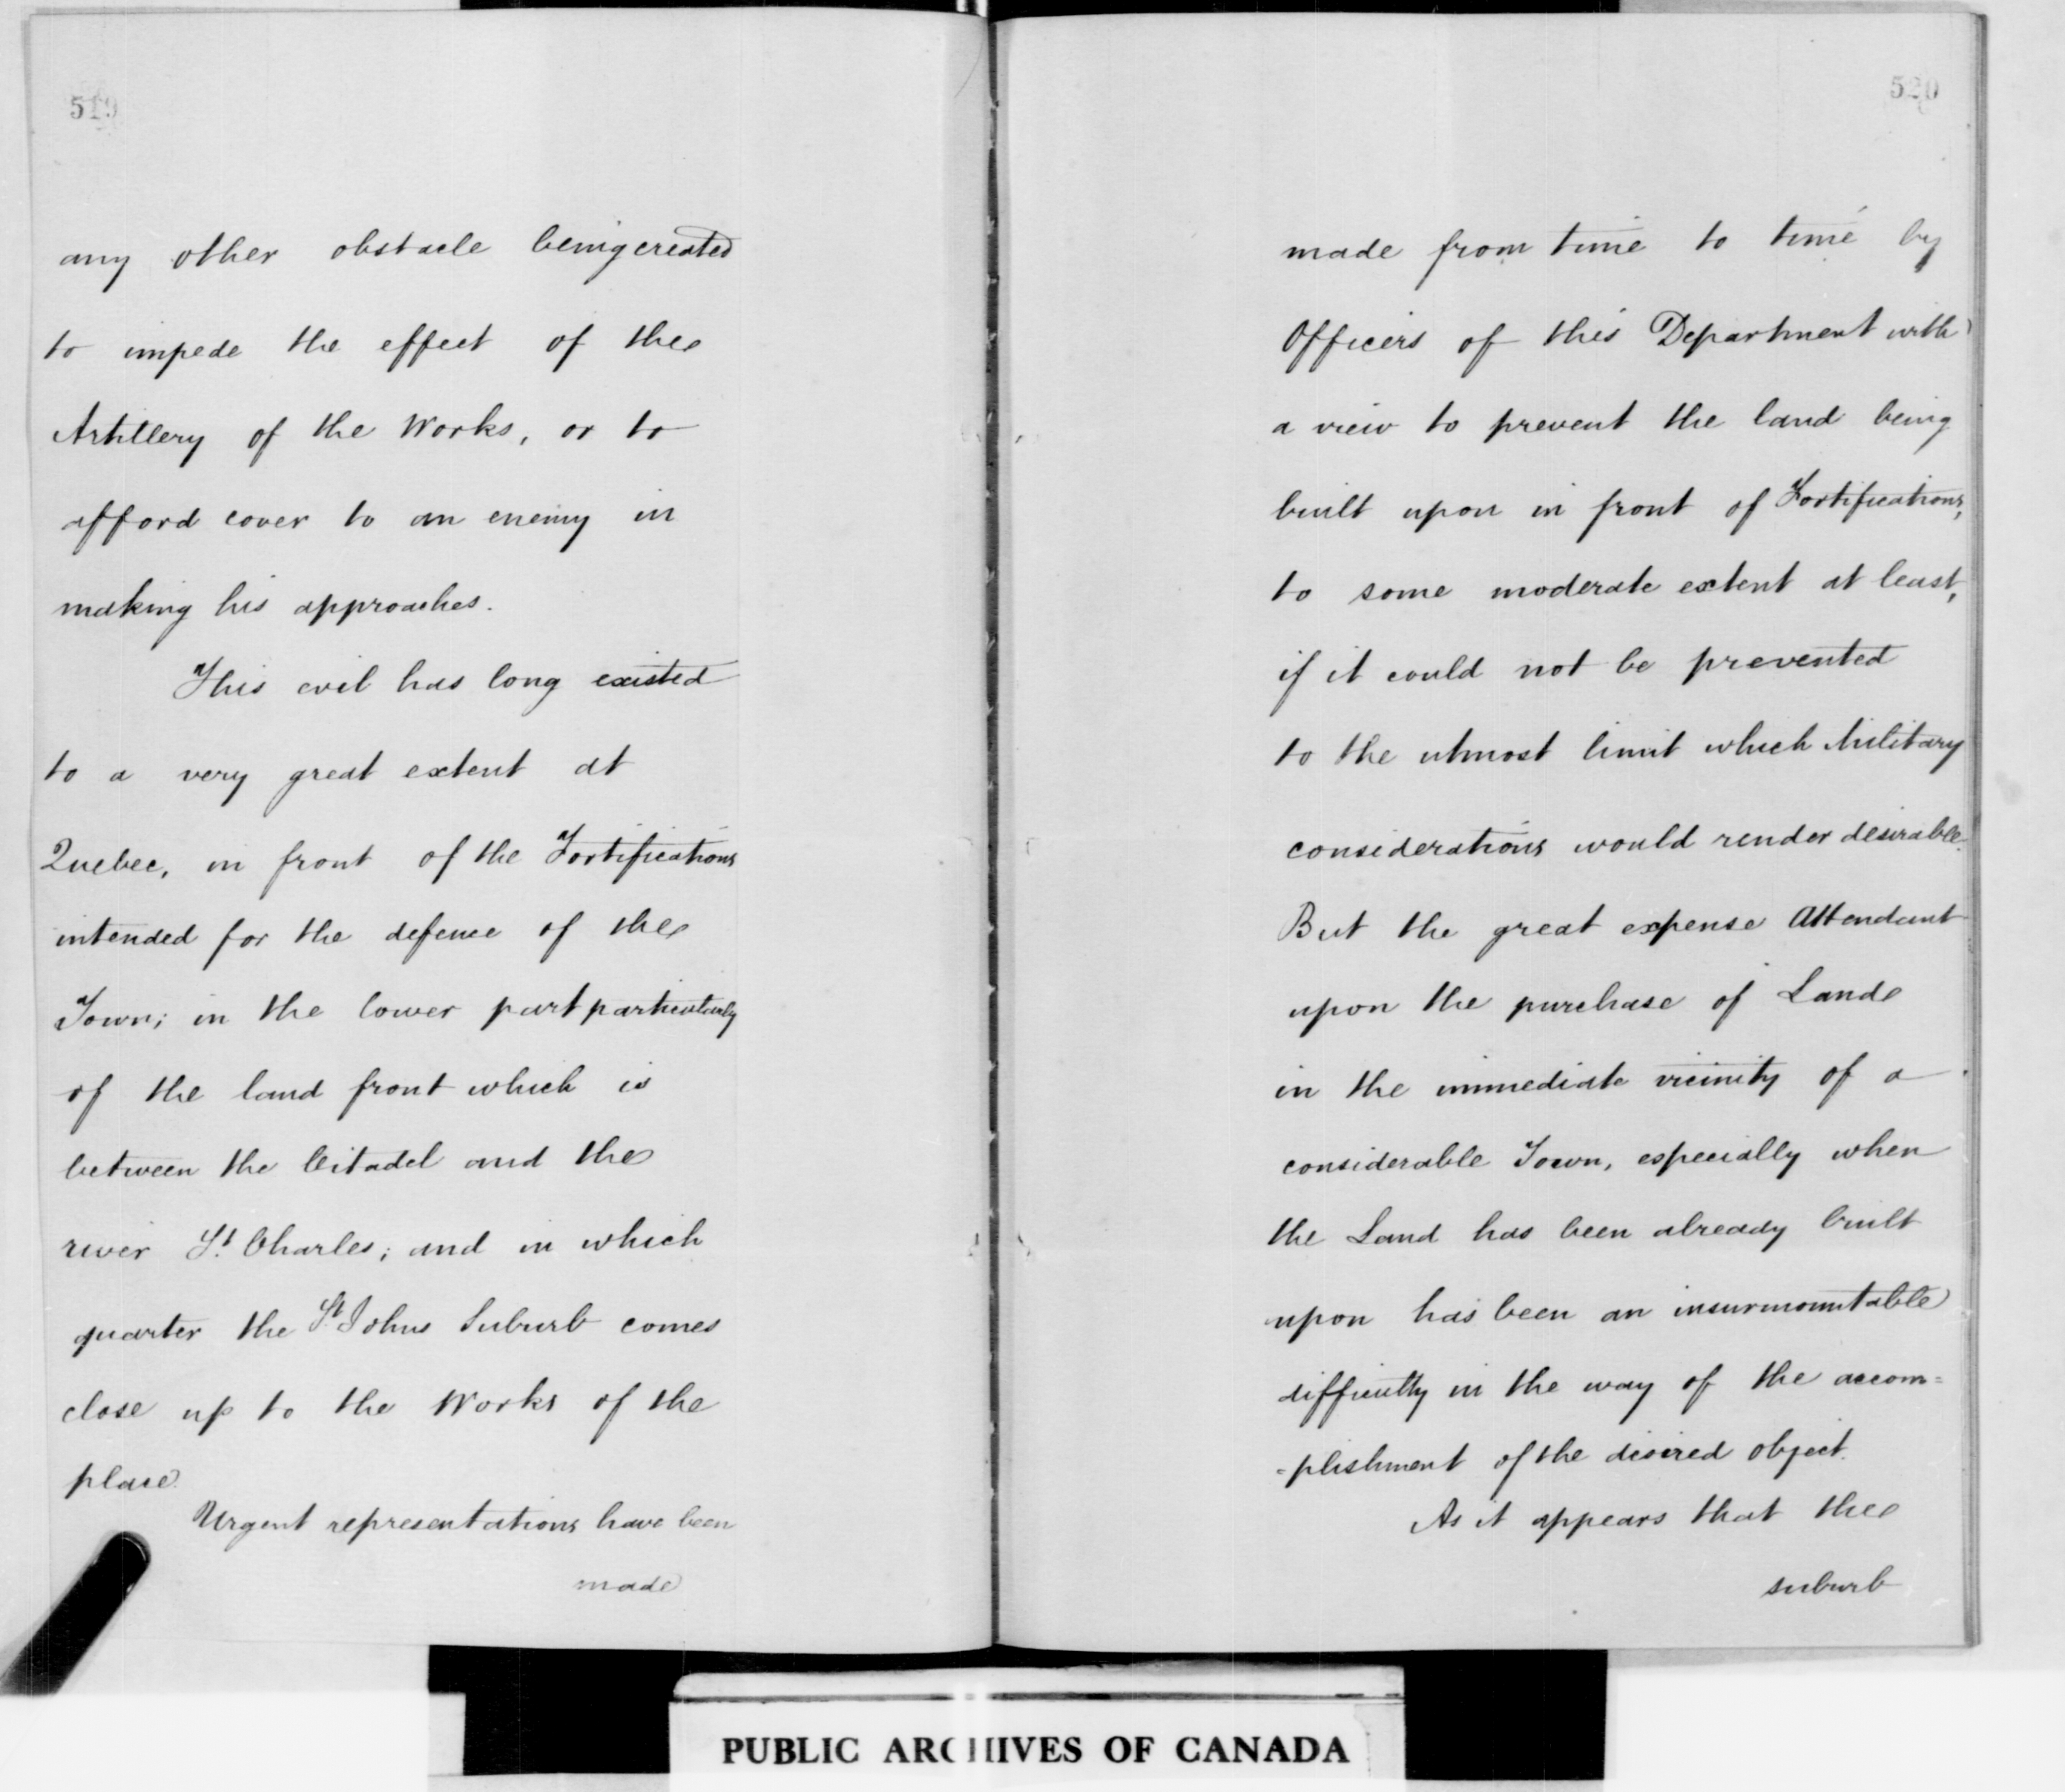 519
any other obstacle being created
to impede the effect of the
Artillery of the Works, or to
afford cover to an enemy in
making his approaches.
This evil has long existed
to a very great extent at
Quebec, in front of the Fortifications
intended for the defence of the
Town; in the lower part particularly
of the land front which is
between the Citadel and the
river St. Charles; and in which
quarter the St. Johns Suburb comes
close up to the Works of the
place.
Urgent representations have been
made
520
made from time to time by
Officers of this Department with
a view to prevent the land being
built upon in front of Fortifications,
to some moderate extent at least,
if it could not be prevented
to the utmost limit which Military
considerations would render desirable.
But the great expense Attendant
upon the purchase of Land
in the immediate vicinity of a
considerable Town, especially when
the Land has been already built
upon has been an insurmountable
difficulty in the way of the accom=
=plishment of the desired object.
As it appears that the
suburb
PUBLIC ARCHIVES OF CANADA